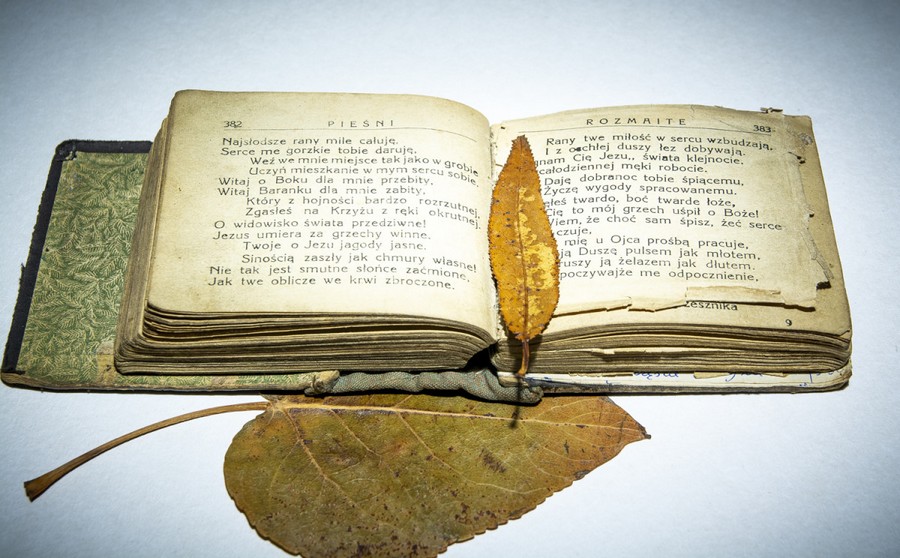 382 PIEŚNI
Najsłodsze rany mile całuję,
Serce me gorzkie tobie daruję,
Weź we mnie miejsce tak jako w grobie
Uczyń mieszkanie w mym sercu sobie.
Witaj o Boku dla mnie przebity,
Witaj Baranku dla mnie zabity,
Który z hojności bardzo rozrzutnej,
Zgasłeś na Krzyżu z ręki okrutnej.
O widowisko świata przedziwne!
Jezus umiera za grzechy winne,
Twoje o Jezu jagody jasne.
Sinością zaszły jak chmury własne!
Nie tak jest smutne słońce zaćmione,
Jak twe oblicze we krwi zbroczone.
ROZMAITE 383
Rany twe miłość w sercu wzbudzają,
I z oschłej duszy łez dobywają.
Cię Jezu,, świata klejnocie,
całodziennej męki robocie.
Daję dobranoc tobie śpiącemu,
Życzę wygody spracowanemu.
twardo, boć twarde łoże,
Cię to mój grzech uśpił o Boże!
Wiem, że choć sam śpisz, żeć serce
mię u Ojca prośbą pracuje,
Duszę pulsem jak młotem,
ją żelazem jak dłutem.
me odpocznienie.
9